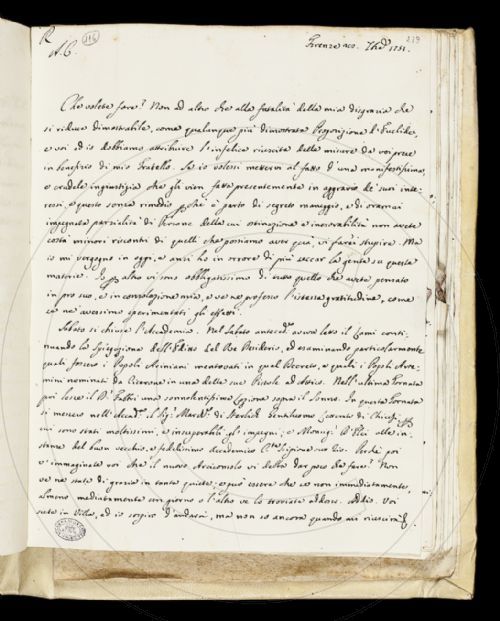 R
A. C.
116
219
Firenze 20. 7bre 1751.
Che volete fare? Non ad altro che alla fatalità della mia disgrazia che
si riduce dimostrabile, come qualunque più dimostrata Proposizione d'Euclide,
e voi ed io dobbiamo attribuire l'infelice riuscita delle misure da voi prese
in benefizio di mio Fratello. Se io volessi mettervi al fatto d'una manifestissima,
e crudele ingiustizia che gli vien fatta presentemente in aggravio de' suoi inte-
ressi, e questo senza rimedio perchè è parto di segreto maneggio, e di oramai
impegnata parzialità di Persone della cui ostinazione e inesorabilità non avete
costà minori riscontri di quelli che possiamo aver quà, vi farei stupire. Ma
io mi vergogno in oggi, e anzi ho in orrore di più seccar la gente su questa
materia. Io per altro vi sono obbligatissimo di tutto quello che avete pensato
in pro suo, e in consolazione mia, e ve ne professo l'istessa gratitudine, come
se ne avessimo sperimentati gli effetti.
Sabato si chiuse l'Accademia. Nel Sabato anteced.te aveva letto il Lami conti-
nuando la Spiegazione dell'Editto del Re Desiderio, ed esaminando particolarmente
quali fossero i Popoli Ariniani mentovati in quel Decreto, e quali i Popoli Are-
mini nominati da Cicerone in una delle sue Pistole ad Attico. Nell'ultima Tornata
poi lesse il D.r Fabbri una sonnolentissima Lezione sopra il Sonno. In questa Tornata
si messero nell'Accad.a il Sig.r March. di Gentiluomo di Chiesi, per
cui sono stati moltissimi, e insuperabili gl'impegni; e Monsig.r d'Elci alle in-
stanze del buon vecchio, e fedelissimo Accademico C.te Scipione suo Zio. Perchè poi
v'immaginate voi che il nuovo Arciconsolo vi debba dar poco da fare? Non
ve ne state di grazia in tanta quiete; e può essere che se non immediatamente,
almeno mediatamente un giorno o l'altro ve lo troviate addosso. Addio. Voi
siete in Villa, ed io sospiro d'andarvi, ma non so ancora quando mi riescirà